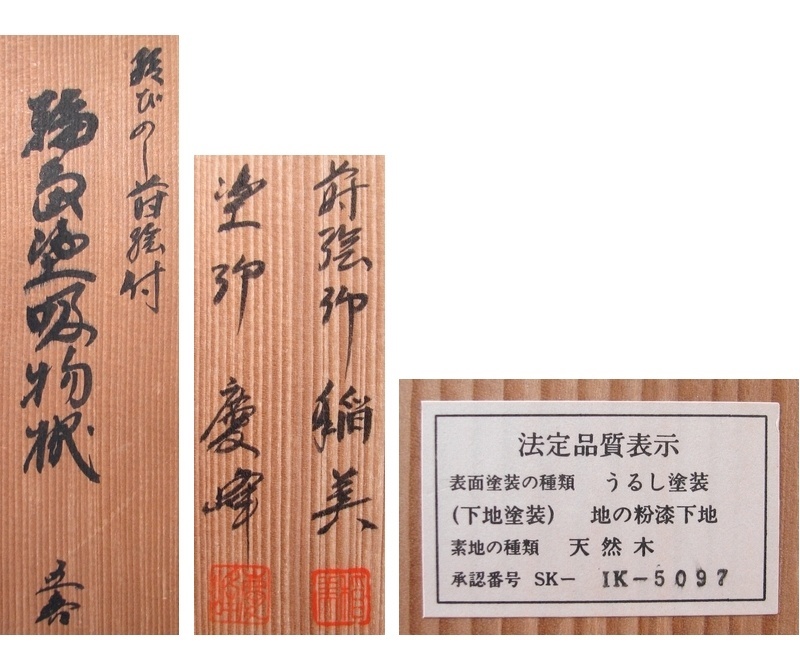 結びのし蒔絵付
輪島塗吸物椀
五客
蒔絵師 稲美
塗師 慶峰
法定品質表示
表面塗装の種類 うるし塗装
(下地塗装) 地の粉漆下地
素地の種類 天然木
承認番号 SK- IK-5097